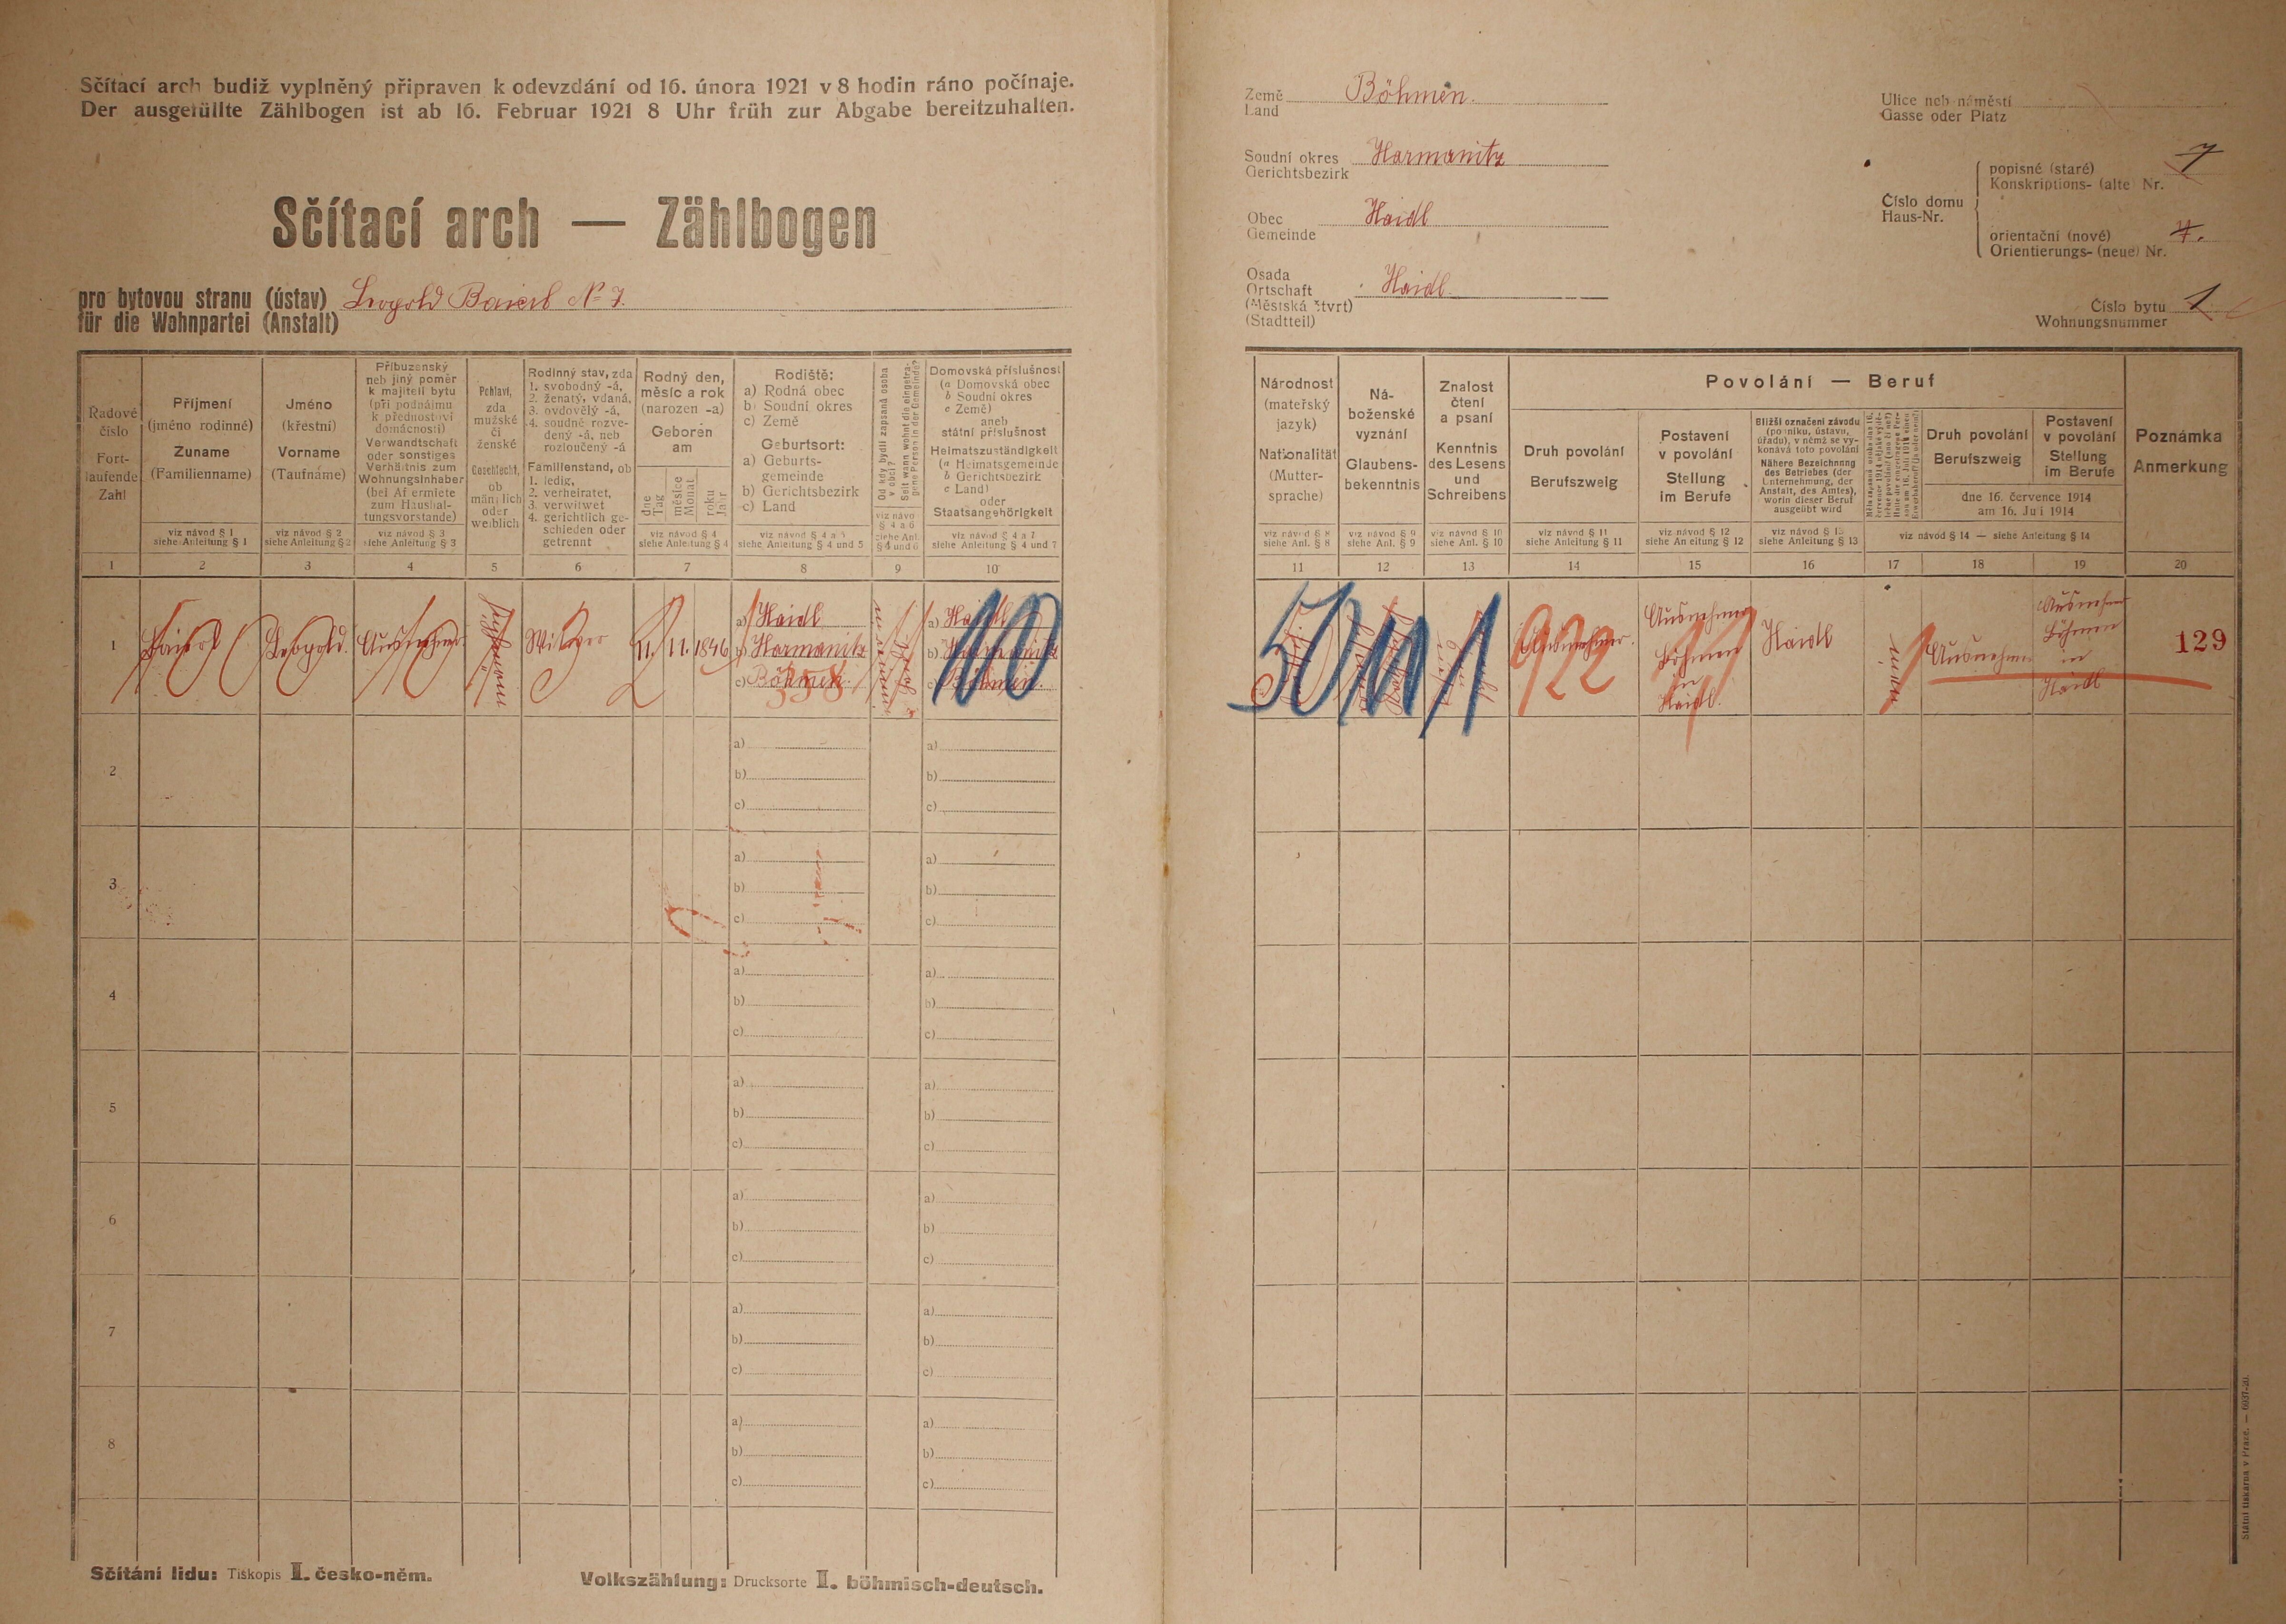 Sčítací arch budiž vyplněný připraven k odevzdání od 16. února 1921 v 8 hodin ráno počínaje.
Der ausgefüllte Zählbogen ist ab 16. Februar 1921 8 Uhr früh zur Abgabe bereitzuhalten.
Sčítací arch — Zählbogen
pro bytovou stranu (ústav)
für die Wohnpartei (Anstalt)
Leopold Baierl № 7.
Země
Land
Böhmen.
Soudní okres
Gerichtsbezirk
Harmanitz
Obec
Gemeinde
Haidl
Osada
Ortschaft
(Městská čtvrt)
(Stadtteil)
Haidl.
Ulice neb náměstí
Gasse oder Platz
Číslo domu
Haus-Nr.
popisné (staré)
Konskriptions- (alte) Nr.
7
orientační (nové)
Orientierungs- (neue) Nr.
7.
Číslo bytu
Wohnungsnummer
1
Řadové
číslo
Fort-
laufende
Zahl
Příjmení
(jméno rodinné)
Zuname
(Familienname)
viz návod § 1
siehe Anleitung § 1
Jméno
(křestní)
Vorname
(Taufname)
viz návod § 2
siehe Anleitung § 2
Příbuzenský
neb jiný poměr
k majiteli bytu
(při podnájmu
k přednostovi
domácnosti)
Verwandtschaft
oder sonstiges
Verhältnis zum
Wohnungsinhaber
(bei Afermiete
zum Haushal-
tungsvorstande)
viz návod § 3
siehe Anleitung § 3
Pohlaví,
zda
mužské
či
ženské
Geschlecht,
ob
männlich
oder
weiblich
Rodinný stav, zda
1. svobodný -á,
2. ženatý, vdaná,
3. ovdovělý -á,
4. soudně rozve-
dený -á, neb
rozloučený -á
Familienstand, ob
1. ledig,
2. verheiratet,
3. verwitwet
4. gerichtlich ge-
schieden oder
getrennt
Rodný den,
měsíc a rok
(narozen -a)
Geboren
am
dne
Tag
měsíce
Monat
roku
Jahr
viz návod § 4
siehe Anleitung § 4
Rodiště:
a) Rodná obec
b) Soudní okres
c) Země
Geburtsort:
a) Geburts-
gemeinde
b) Gerichtsbezirk
c) Land
viz návod § 4 a 5
siehe Anleitung § 4 und 5
Od kdy bydlí zapsaná osoba
v obci?
Seit wann wohnt die eingetra-
gene Person in der Gemeinde?
viz návod
§ 4 a 6
siehe Anl.
§ 4 und 6
Domovská příslušnost
(a Domovská obec
b Soudní okres
c Země)
aneb
státní příslušnost
Heimatszuständigkeit
(a Heimatsgemeinde
b Gerichtsbezirk
c Land)
oder
Staatsangehörigkeit
viz návod § 4 a 7
siehe Anleitung § 4 und 7
Národnost
(mateřský
jazyk)
Nationalität
(Mutter-
sprache)
viz návod § 8
siehe Anl. § 8
Ná-
boženské
vyznání
Glaubens-
bekenntnis
viz návod § 9
siehe Anl. § 9
Znalost
čtení
a psaní
Kenntnis
des Lesens
und
Schreibens
viz návod § 10
siehe Anl. § 10
Povolání — Beruf
Druh povolání
Berufszweig
viz návod § 11
siehe Anleitung § 11
Postavení
v povolání
Stellung
im Berufe
viz návod § 12
siehe Anleitung § 12
Bližší označení závodu
(podniku, ústavu,
úřadu), v němž se vy-
konává toto povolání
Nähere Bezeichnung
des Betriebes (der
Unternehmung, der
Anstalt, des Amtes),
worin dieser Beruf
ausgeübt wird
viz návod § 13
siehe Anleitung § 13
Druh povolání
Berufszweig
Postavení
v povolání
Stellung
im Berufe
dne 16. července 1914
am 16. Juli 1914
viz návod § 14 — siehe Anleitung § 14
Poznámka
Anmerkung
1 2 3 4 5 6 7 8 9 10 11 12 13 14 15 16 17 18 19 20
1
Baierl
Leopold.
Ausnehmer.
Witwer
11. 11. 1846
a) Haidl
b) Harmanitz
c) Böhmen.
358
a) Haidl
b) Harmanitz
c) Böhmen.
10
50
1
922
Ausnehmer.
Ausnehmer
Böhmen
in
Haidl.
Haidl
Ausnehmer
Ausnehmer
Böhmen
in
Haidl
129
2
a)
b)
c)
a)
b)
c)
3
a)
b)
c)
a)
b)
c)
4
a)
b)
c)
a)
b)
c)
5
a)
b)
c)
a)
b)
c)
6
a)
b)
c)
a)
b)
c)
7
a)
b)
c)
a)
b)
c)
8
a)
b)
c)
a)
b)
c)
Sčítání lidu: Tiskopis I. česko-něm.
Volkszählung: Drucksorte I. böhmisch-deutsch.
Státní tiskárna v Praze. — 6937-20.